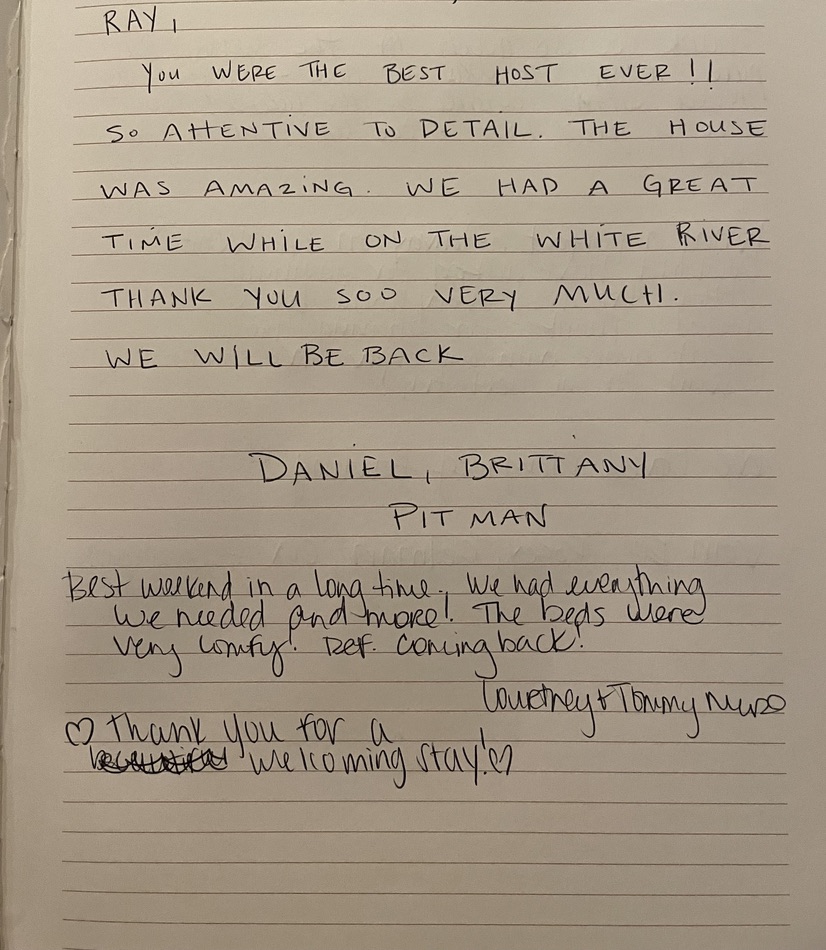 RAY,
You WERE THE BEST HOST EVER!!
So ATTENTIVE To DETAIL. THE HOUSE
WAS AMAZING. WE HAD A GREAT
TIME WHILE ON THE WHITE RIVER
THANK YOU SOO VERY MUCH.
WE WILL BE BACK
DANIEL, BRITTANY
PITMAN
Best weekend in a long time. We had everything
we needed and more! The beds were
very comfy! Def. coming back!
Courtney + Tommy
♡ Thank you for a
welcoming stay! ♡